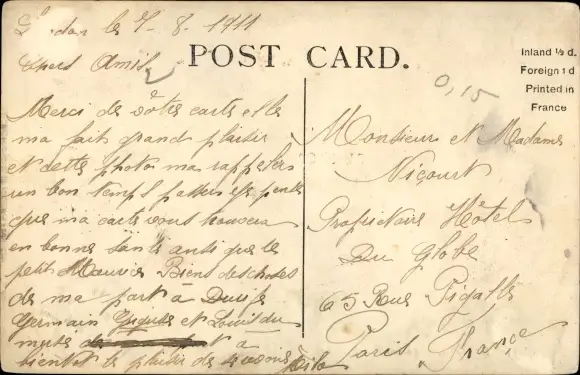 le 7. 8. 1911
Chers Amis
POST CARD.
Inland ½ d.
Foreign 1 d
Printed in
France
0,15
Merci de vôtre carte elle
ma fait grand plaisir
et cette photo ma rappelers
un bon temps passer
que ma carte vous trouvera
en bonne sante ausi que le
petit Maurice Biens des choses
de ma part à
Germain et Louis du
à
bientot le plaisir de
Monsieur et Madame
Niçourt
Propriétaire Hôtel
Du Globe
65 Rue Pigalle
Paris France